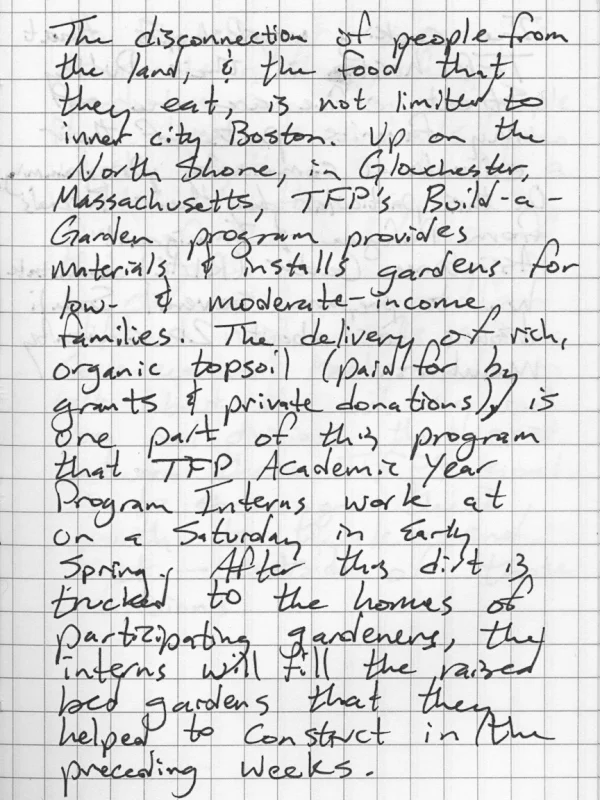 The disconnection of people from
the land, & the food that
they eat, is not limited to
inner city Boston. Up on the
North Shore, in Glouchester,
Massachusetts, TFP's Build-a-
Garden program provides
materials & installs gardens for
low- & moderate-income
families. The delivery of rich,
organic topsoil (paid for by
grants & private donations), is
one part of this program
that TFP Academic Year
Program Interns work at
on a Saturday in Early
Spring. After this dirt is
trucked to the homes of
participating gardeners, the
interns will fill the raised
bed gardens that they
helped to construct in the
preceding weeks.